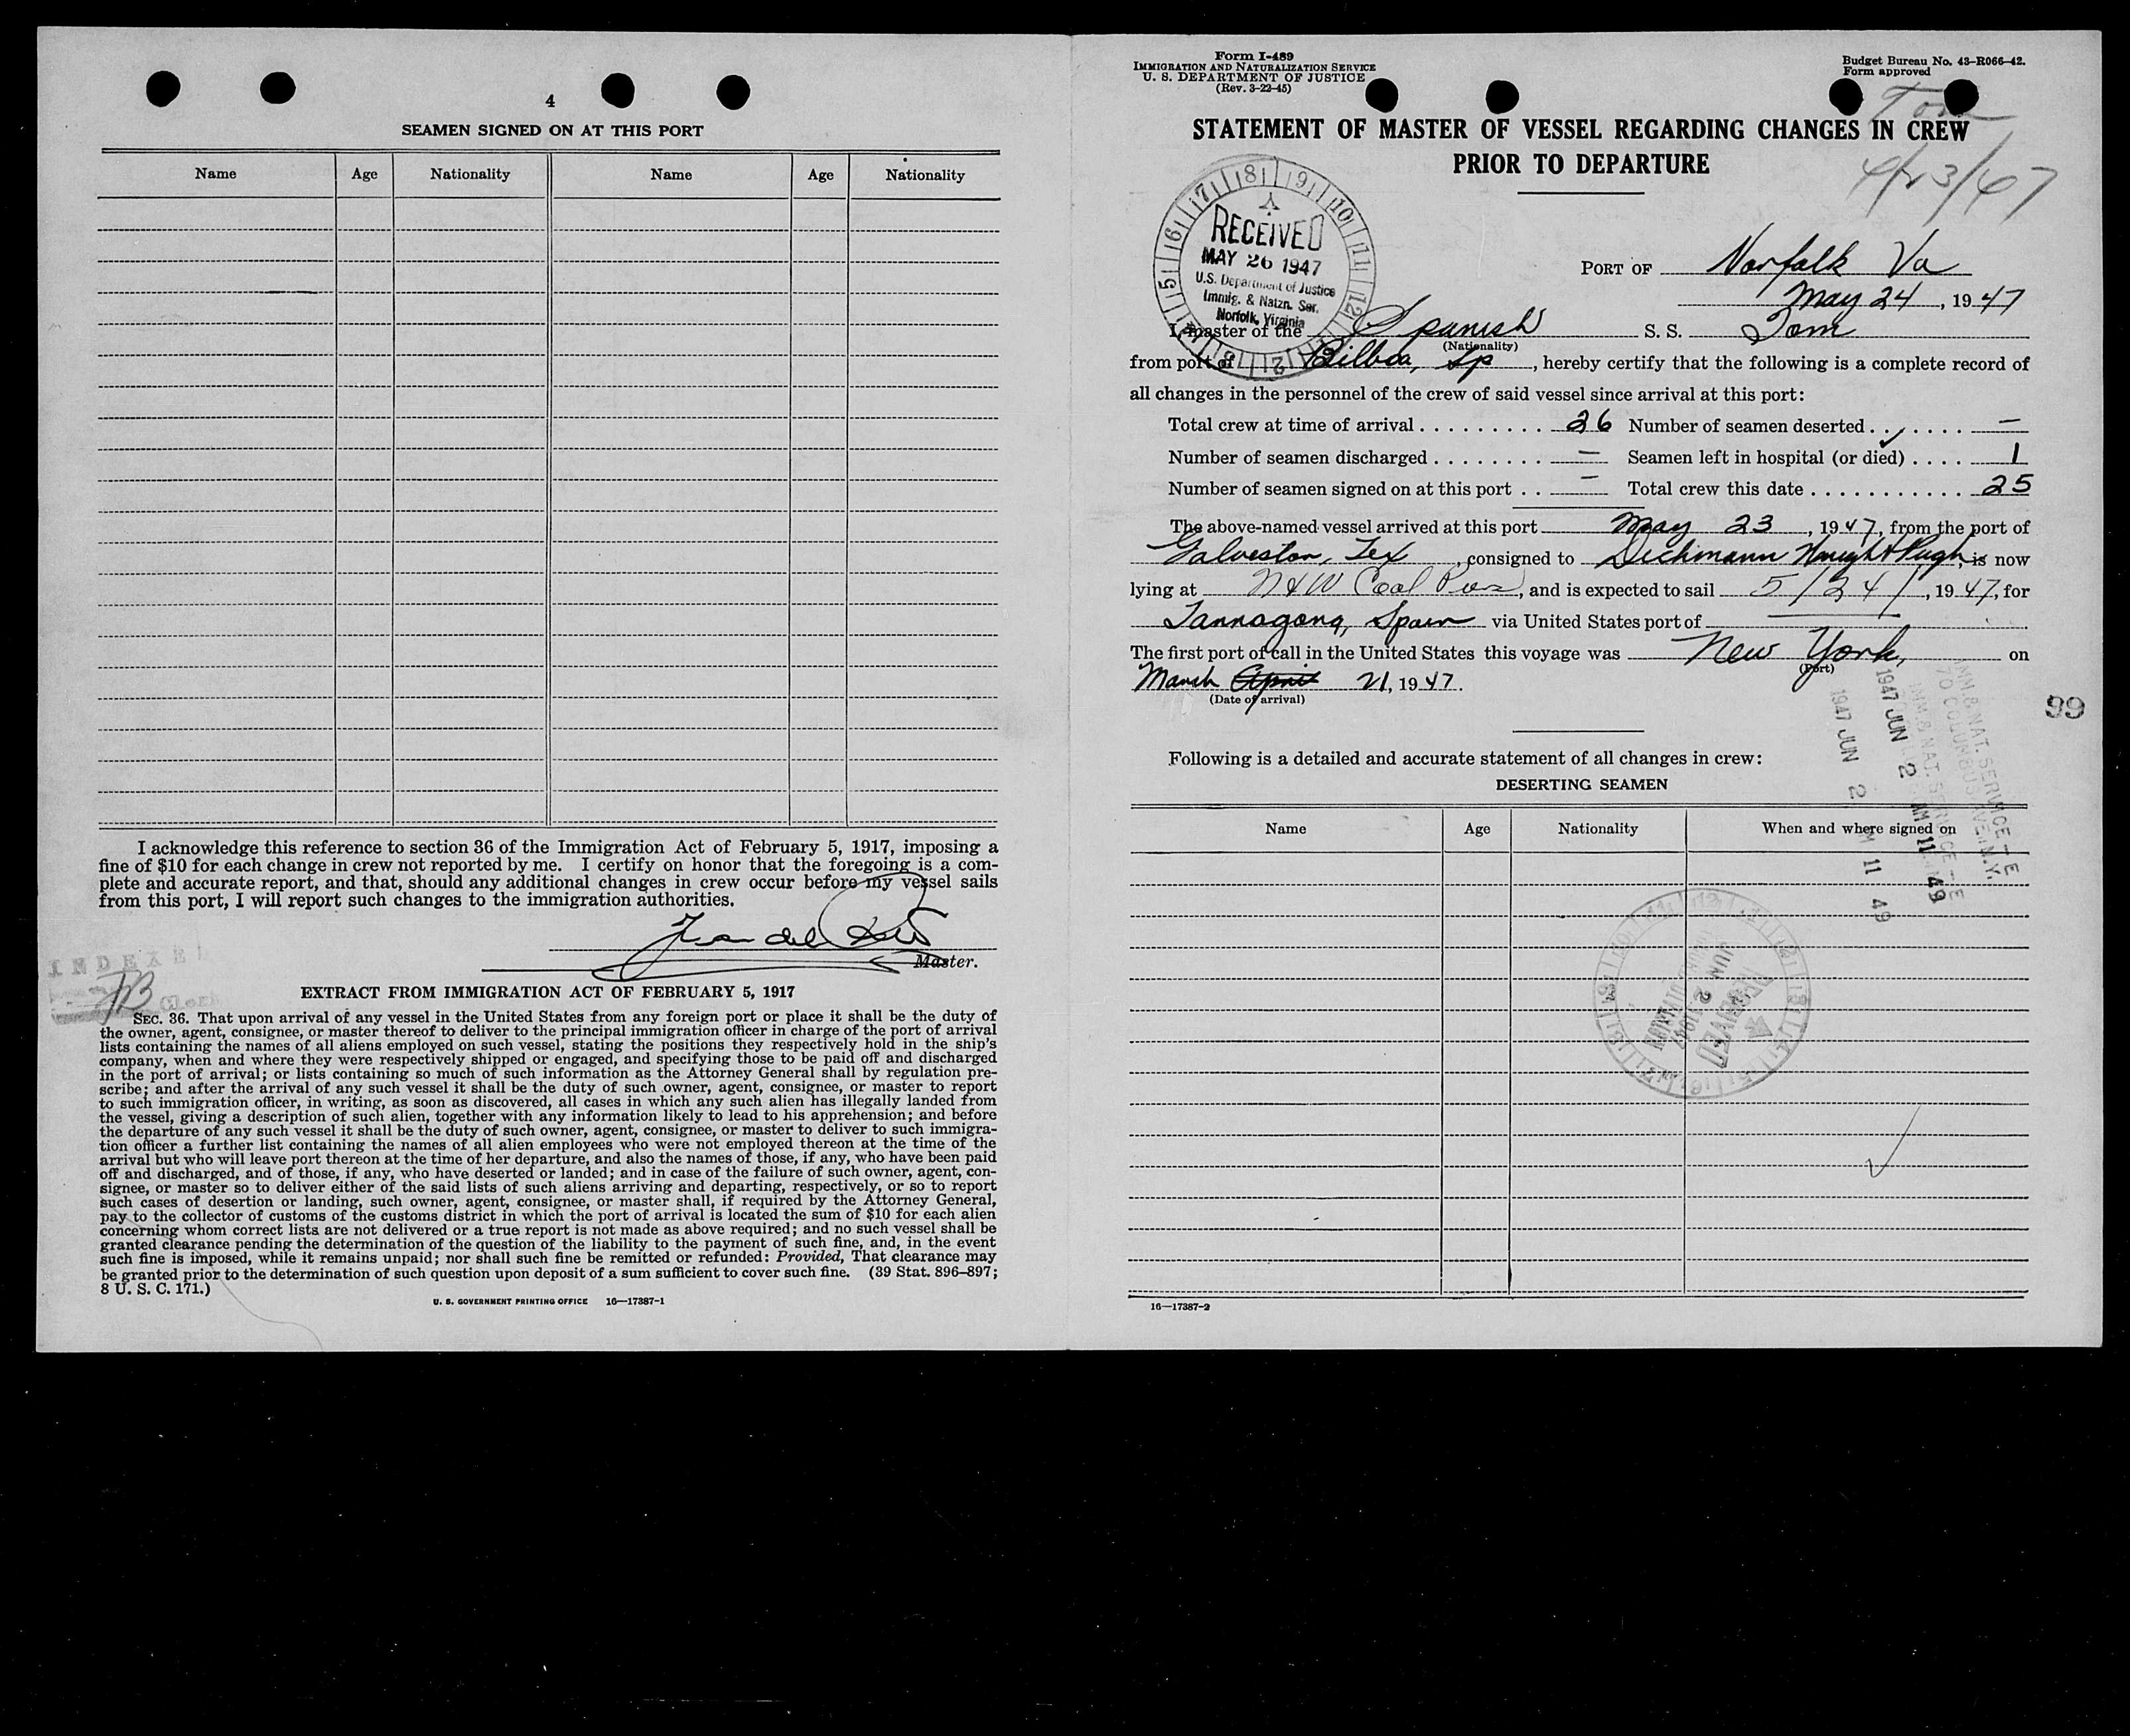 4
SEAMEN SIGNED ON AT THIS PORT
Name Age Nationality Name Age Nationality
I acknowledge this reference to section 36 of the Immigration Act of February 5, 1917, imposing a
fine of $10 for each change in crew not reported by me. I certify on honor that the foregoing is a com-
plete and accurate report, and that, should any additional changes in crew occur before my vessel sails
from this port, I will report such changes to the immigration authorities.
Master.
INDEXED
JB
EXTRACT FROM IMMIGRATION ACT OF FEBRUARY 5, 1917
SEC. 36. That upon arrival of any vessel in the United States from any foreign port or place it shall be the duty of
the owner, agent, consignee, or master thereof to deliver to the principal immigration officer in charge of the port of arrival
lists containing the names of all aliens employed on such vessel, stating the positions they respectively hold in the ship's
company, when and where they were respectively shipped or engaged, and specifying those to be paid off and discharged
in the port of arrival; or lists containing so much of such information as the Attorney General shall by regulation pre-
scribe; and after the arrival of any such vessel it shall be the duty of such owner, agent, consignee, or master to report
to such immigration officer, in writing, as soon as discovered, all cases in which any such alien has illegally landed from
the vessel, giving a description of such alien, together with any information likely to lead to his apprehension; and before
the departure of any such vessel it shall be the duty of such owner, agent, consignee, or master to deliver to such immigra-
tion officer a further list containing the names of all alien employees who were not employed thereon at the time of the
arrival but who will leave port thereon at the time of her departure, and also the names of those, if any, who have been paid
off and discharged, and of those, if any, who have deserted or landed; and in case of the failure of such owner, agent, con-
signee, or master so to deliver either of the said lists of such aliens arriving and departing, respectively, or so to report
such cases of desertion or landing, such owner, agent, consignee, or master shall, if required by the Attorney General,
pay to the collector of customs of the customs district in which the port of arrival is located the sum of $10 for each alien
concerning whom correct lists are not delivered or a true report is not made as above required; and no such vessel shall be
granted clearance pending the determination of the question of the liability to the payment of such fine, and, in the event
such fine is imposed, while it remains unpaid; nor shall such fine be remitted or refunded: Provided, That clearance may
be granted prior to the determination of such question upon deposit of a sum sufficient to cover such fine. (39 Stat. 896–897;
8 U. S. C. 171.)
U. S. GOVERNMENT PRINTING OFFICE 16—17387-1
Form I-489
IMMIGRATION AND NATURALIZATION SERVICE
U. S. DEPARTMENT OF JUSTICE
(Rev. 3-22-45)
Budget Bureau No. 43-R066-42.
Form approved
Tom
STATEMENT OF MASTER OF VESSEL REGARDING CHANGES IN CREW
PRIOR TO DEPARTURE
4/23/47
RECEIVED
MAY 26 1947
U.S. Department of Justice
Immig. & Natzn. Ser.
Norfolk, Virginia
PORT OF Norfolk Va
May 24, 1947
I, master of the Spanish S. S. Tom
(Nationality)
from port of Bilboa, Sp, hereby certify that the following is a complete record of
all changes in the personnel of the crew of said vessel since arrival at this port:
Total crew at time of arrival 26 Number of seamen deserted —
Number of seamen discharged — Seamen left in hospital (or died) 1
Number of seamen signed on at this port — Total crew this date 25
The above-named vessel arrived at this port May 23, 1947, from the port of
Galveston, Tex, consigned to Dichmann Wright & Pugh, is now
lying at N & W Coal Pier, and is expected to sail 5/24/, 1947, for
Tarragona, Spain via United States port of —
The first port of call in the United States this voyage was New York, on
(Port)
March April 21, 1947.
(Date of arrival)
99
IMM & NAT. SERVICE
70 COLUMBUS AVE. N.Y.
1947 JUN 2 AM 11 49
1947 JUN 2 AM 11 49
Following is a detailed and accurate statement of all changes in crew:
DESERTING SEAMEN
Name Age Nationality When and where signed on
RECEIVED
JUN 2 1947
16—17387-2